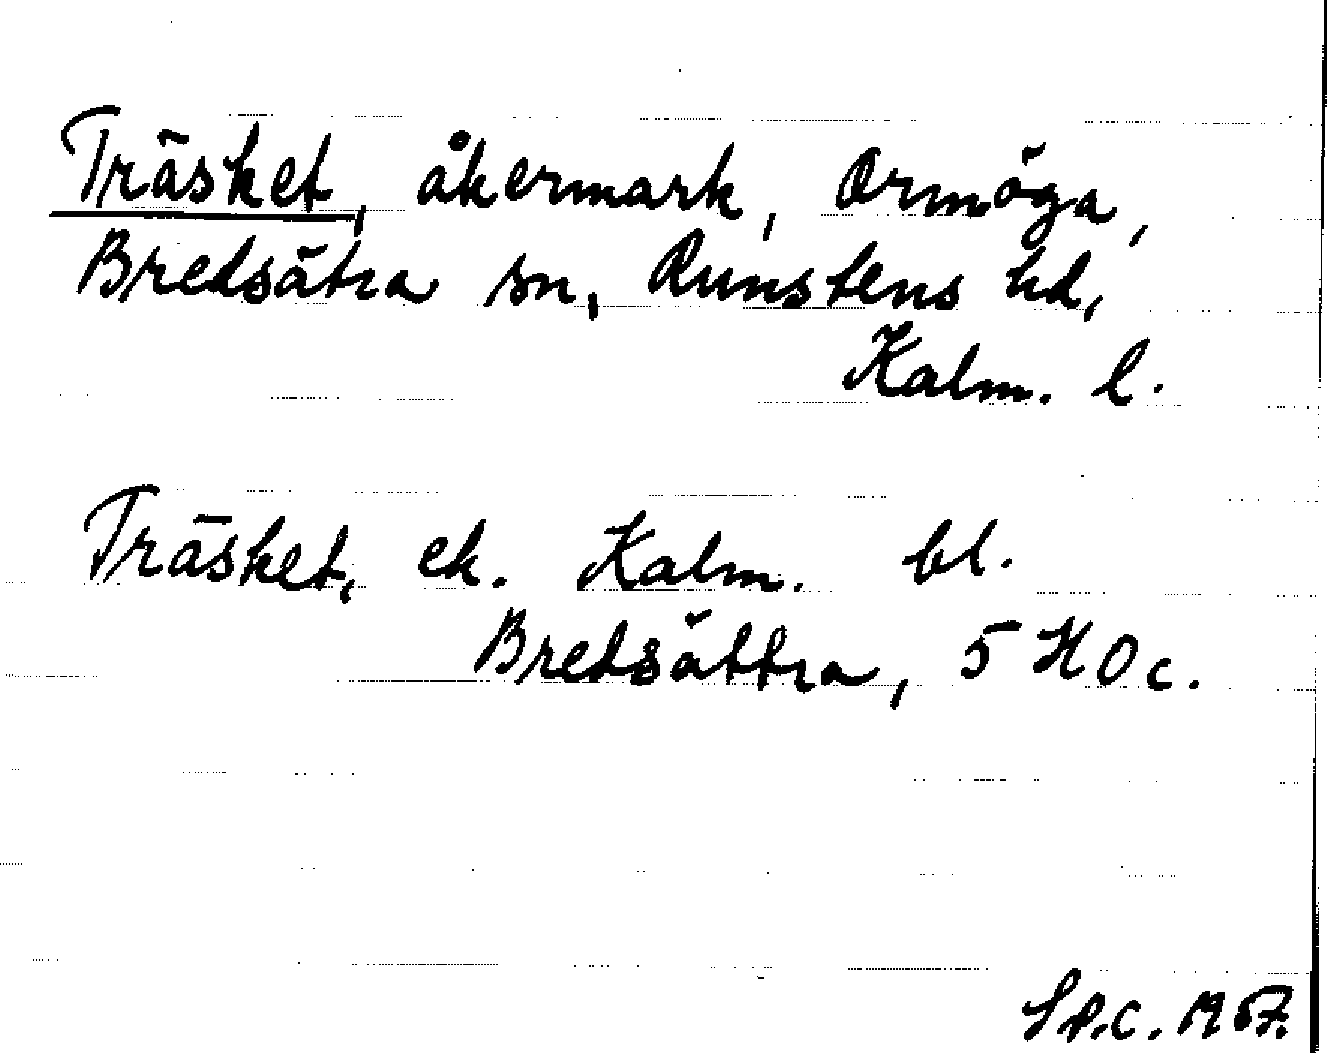 Träsket, åkermark, Ormöga,
Bredsätra sn, Runstens hd,
Kalm. l.
Träsket, ek. Kalm. bl.
Bredsättra, 5 H 0 c.
1967.